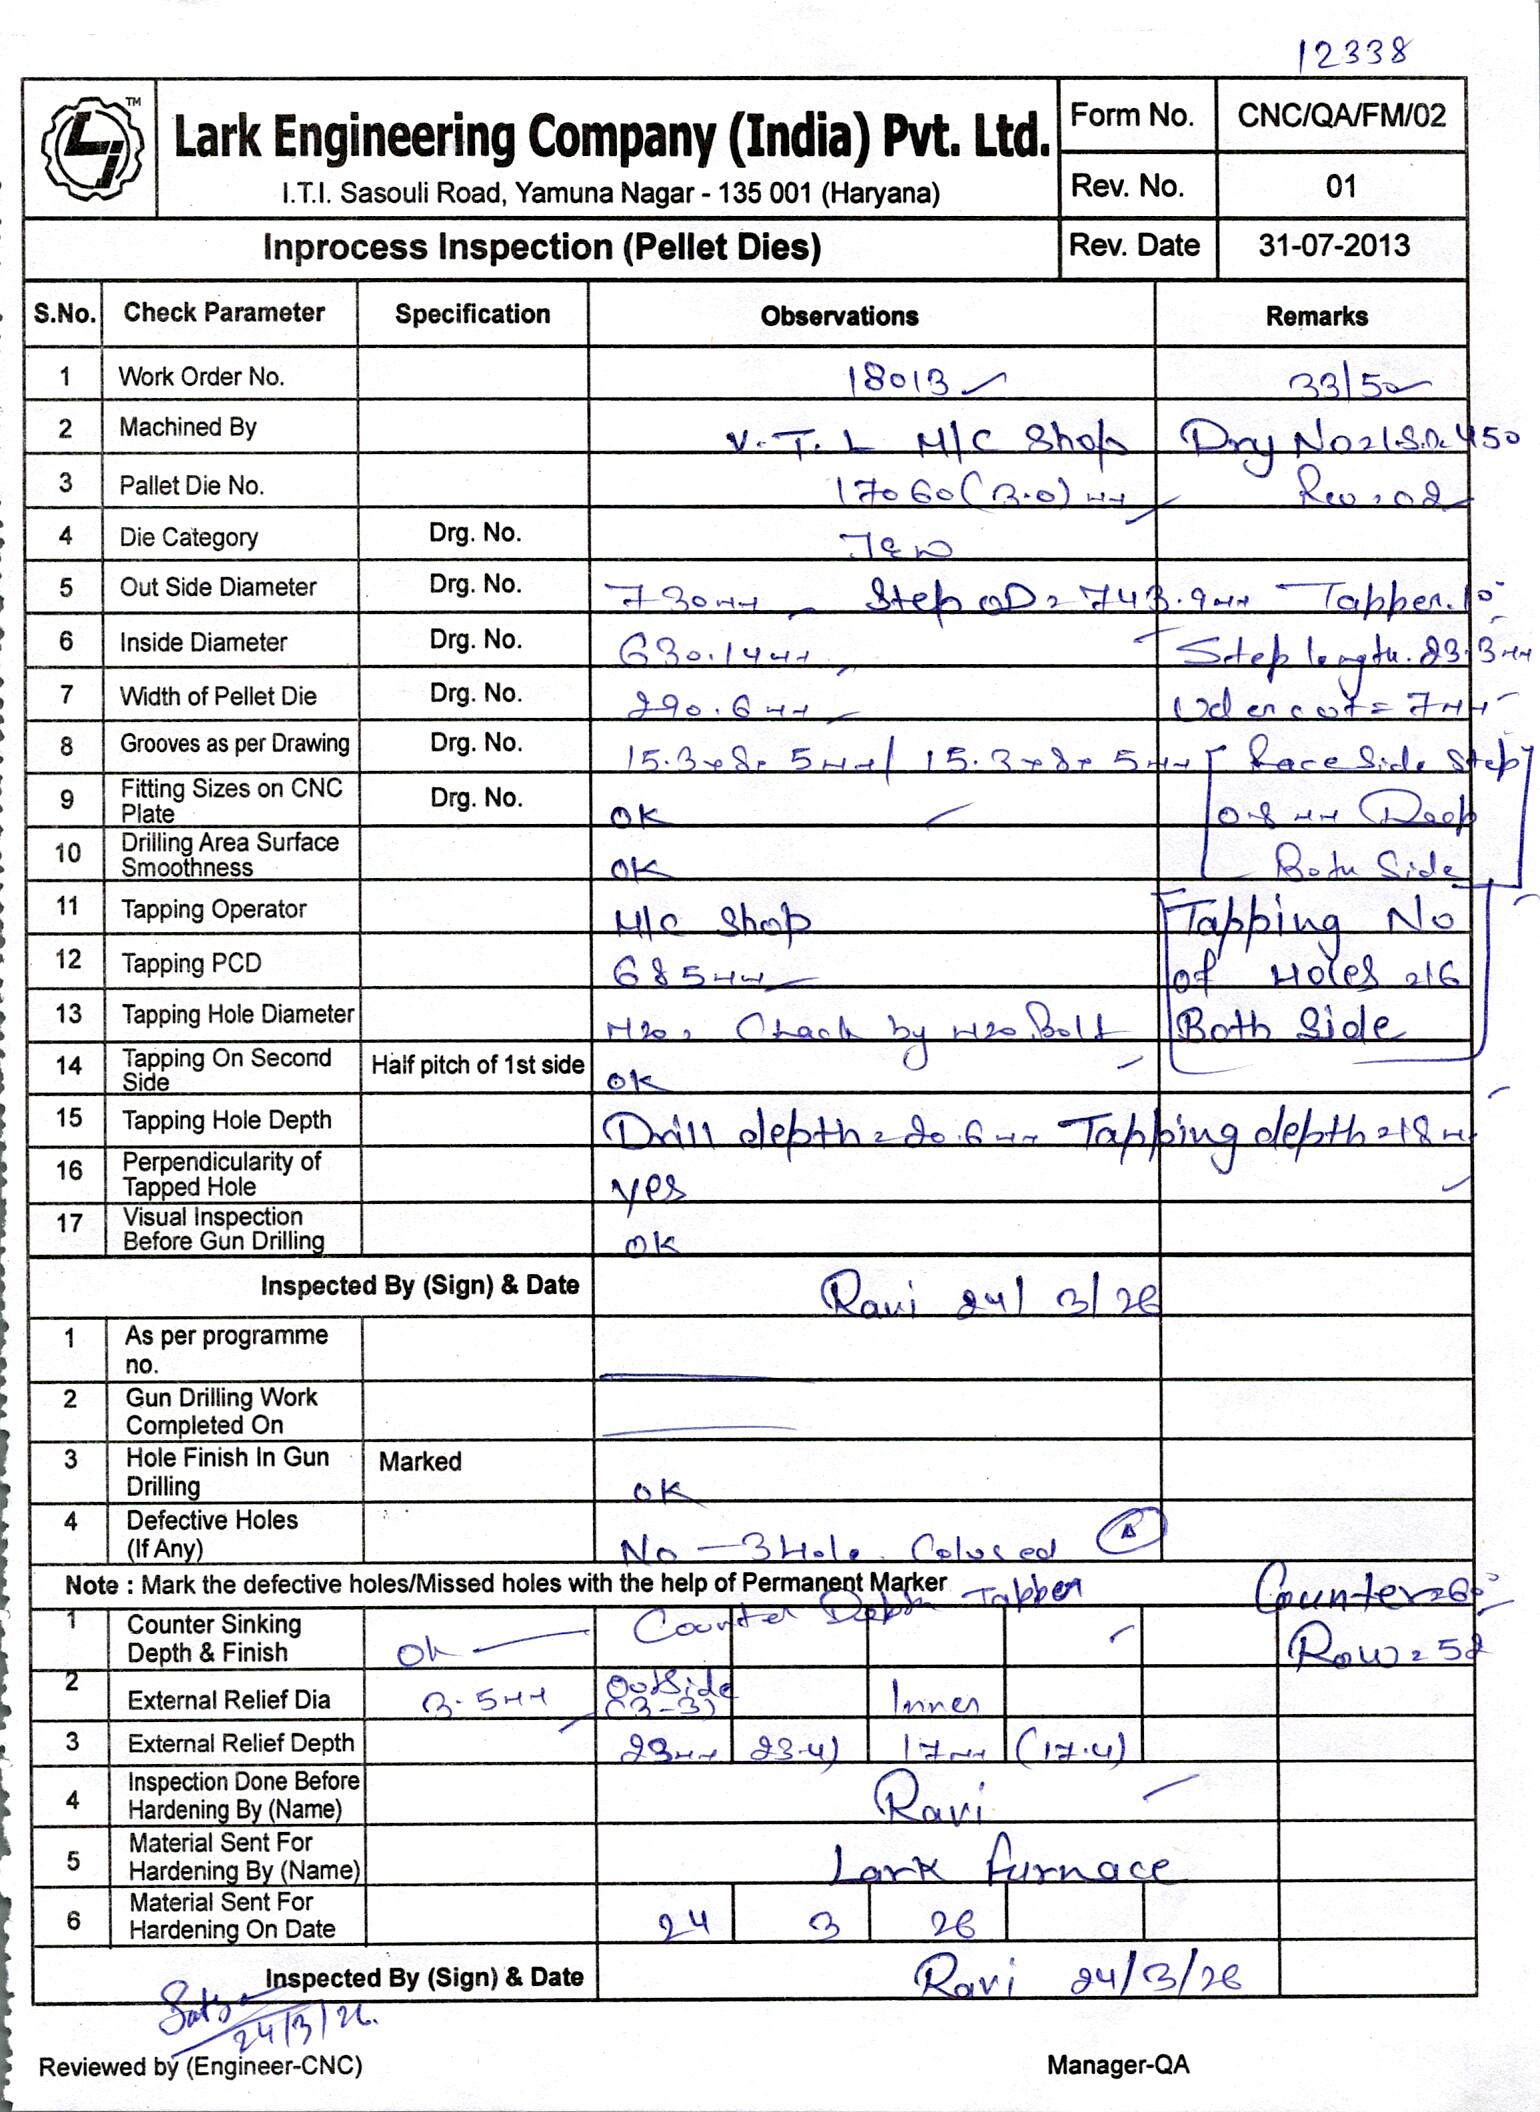 12338
TM
Lark Engineering Company (India) Pvt. Ltd.
I.T.I. Sasouli Road, Yamuna Nagar - 135 001 (Haryana)
Form No. CNC/QA/FM/02
Rev. No. 01
Inprocess Inspection (Pellet Dies)
Rev. Date 31-07-2013
S.No. Check Parameter Specification Observations Remarks
1 Work Order No. 18013 33/50
2 Machined By V.T.L M/C Shop
3 Pallet Die No. 17060 (3.0) Rev 02
4 Die Category Drg. No.
5 Out Side Diameter Drg. No. 730 Step OD = 743.9 Tapper. 10°
6 Inside Diameter Drg. No. 630.14 Step length. 23.3
7 Width of Pellet Die Drg. No. 290.6 = 7
8 Grooves as per Drawing Drg. No. 15.3 15.3 Side Step
9 Fitting Sizes on CNC Plate Drg. No. OK 0.8 Deep
10 Drilling Area Surface Smoothness OK Both Side
11 Tapping Operator M/C Shop Tapping No
12 Tapping PCD 685 of Holes =16
13 Tapping Hole Diameter M20, Check by M20 Bolt Both Side
14 Tapping On Second Side Half pitch of 1st side OK
15 Tapping Hole Depth Drill depth = 20.6 Tapping depth = 18
16 Perpendicularity of Tapped Hole yes
17 Visual Inspection Before Gun Drilling OK
Inspected By (Sign) & Date Ravi 24/3/26
1 As per programme no.
2 Gun Drilling Work Completed On
3 Hole Finish In Gun Drilling Marked OK
4 Defective Holes (If Any) No - 3 Hole
Note : Mark the defective holes/Missed holes with the help of Permanent Marker Counter = 60°
1 Counter Sinking Depth & Finish Ok Counter Depth Tapper Row = 52
2 External Relief Dia 3.5 Outside (3-3) Inner
3 External Relief Depth 23 23.4) 17 (17.4)
4 Inspection Done Before Hardening By (Name) Ravi
5 Material Sent For Hardening By (Name) Lark furnace
6 Material Sent For Hardening On Date 24 3 26
Inspected By (Sign) & Date Ravi 24/3/26
24/3/26.
Reviewed by (Engineer-CNC) Manager-QA